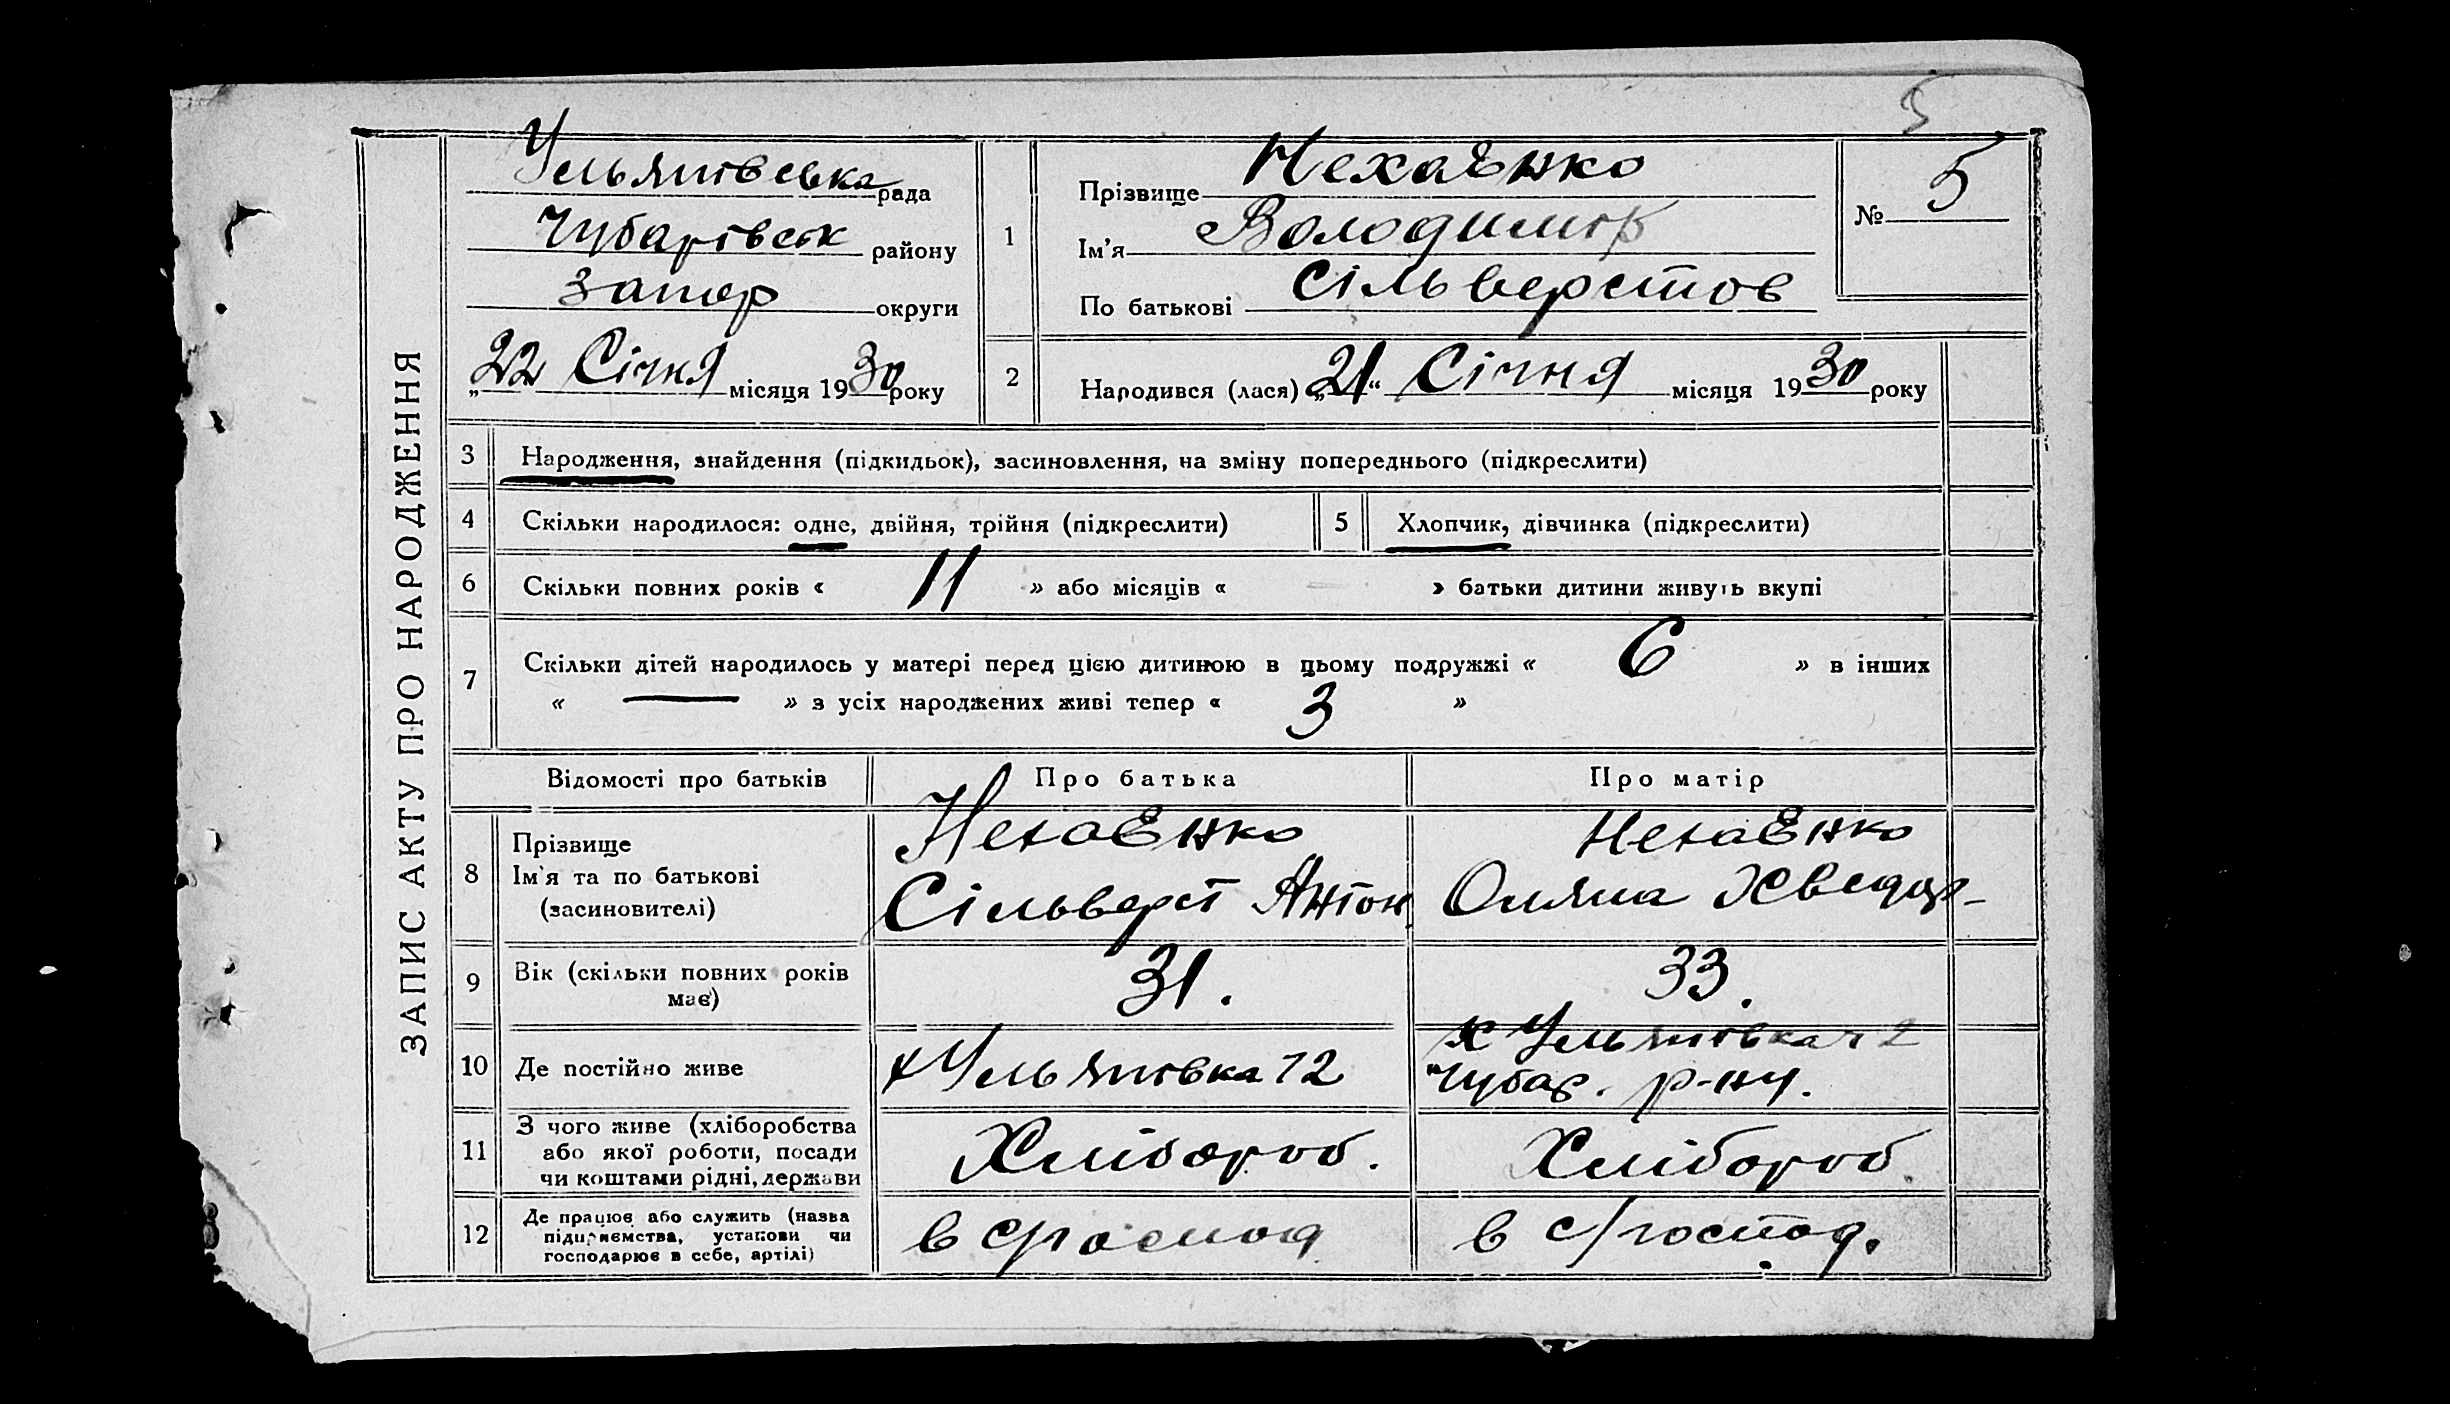 5
ЗАПИС АКТУ ПРО НАРОДЖЕННЯ
Ульянівська рада
Чубарівськ району
Запор округи
„22 Січня місяця 1930 року
1
Прізвище Нехаєнко
Ім’я Володимір
По батькові Сільверстов
№ 5
2
Народився (лася) „21“ Січня місяця 1930 року
3 Народження, знайдення (підкидьок), засиновлення, на зміну попереднього (підкреслити)
4 Скільки народилося: одне, двійня, трійня (підкреслити)
5 Хлопчик, дівчинка (підкреслити)
6 Скільки повних років « 11 » або місяців « » батьки дитини живуть вкупі
7 Скільки дітей народилось у матері перед цією дитиною в цьому подружжі « 6 » в інших
« — » з усіх народжених живі тепер « 3 »
Відомості про батьків Про батька Про матір
8 Прізвище
Ім’я та по батькові
(засиновителі)
Нехаєнко
Сільверст Антон
Нехаєнко
Хведор-
9 Вік (скільки повних років
має)
31.
33.
10 Де постійно живе
х Ульянівка 12
х Ульянівка 2
Чубар. р-ну.
11 З чого живе (хліборобства
або якої роботи, посади
чи коштами рідні, держави
Хлібороб.
Хлібороб.
12 Де працює або служить (назва
підприємства, установи чи
господарює в себе, артілі)
в с/господ
в с/господ.